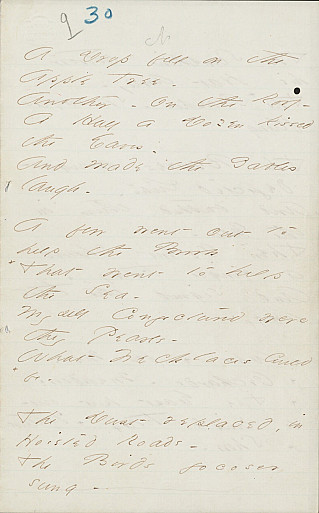 9 30
A Drop fell on the
Apple Tree -
Another - On the Roof -
A Half a Dozen kissed
the Eaves -
And made the Gables
laugh -
A few went out to
help the Brook
That went to help
the Sea -
Myself Conjectured were
they Pearls -
What Necklaces could
be -
The Dust replaced, in
Hoisted Roads -
The Birds jocoser
sung -